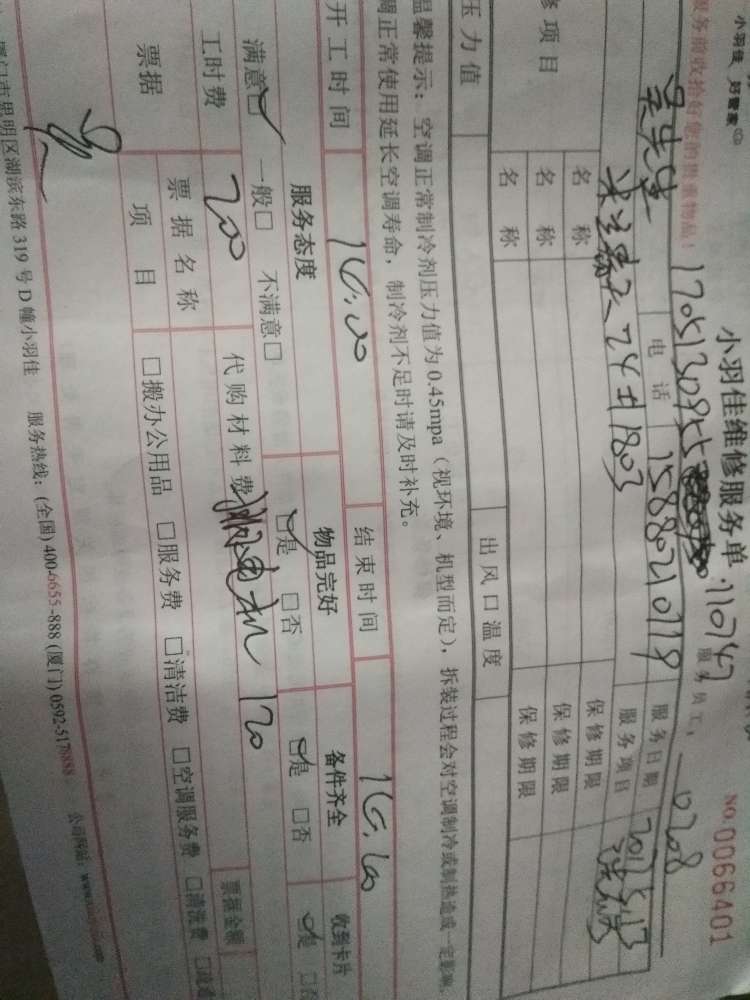 小羽佳 好管家
小羽佳维修服务单
NO.0066401
服务前收拾好您的贵重物品!
17051309
110747
服务员工:
0208
吴先生
电话
15880210119
服务日期
24#1803
服务项目
修项目
名称
保修期限
名称
保修期限
名称
保修期限
压力值
出风口温度
温馨提示:空调正常制冷剂压力值为0.45mpa(视环境、机型而定),拆装过程会对空调制冷或制热造成一定影响,
调正常使用延长空调寿命,制冷剂不足时请及时补充。
开工时间
16:00
结束时间
服务态度
物品完好
备件齐全
收到卡片
满意□ 一般□ 不满意□
□是 □否
□是 □否
□是 □否
工时费
200
代购材料费
电机 120
票据
票据名称
票据金额
项目
□搬办公用品 □服务费 □清洁费 □空调服务费 □清洗费
厦门市思明区湖滨东路319号D幢小羽佳 服务热线:(全国)400-6655-888 (厦门)0592-5178888
公司网站: